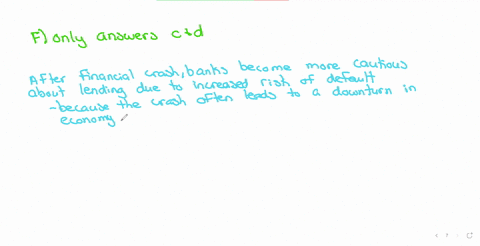 F) only answers c+d
After financial crash, banks become more cautious
about lending due to increased risk of default
-because the crash often leads to a downturn in
economy